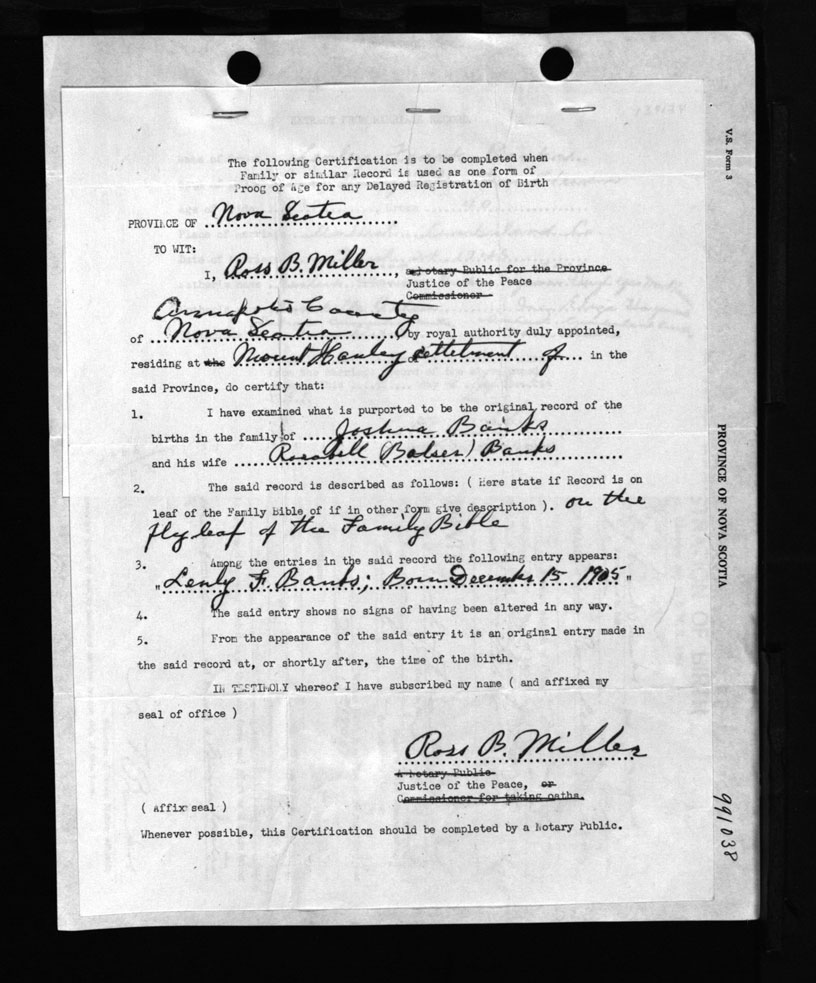 The following Certification is to be completed when
Family or similar Record is used as one form of
Proog of Age for any Delayed Registration of Birth
PROVINCE OF Nova Scotia
TO WIT:
I, Ross B. Miller, a Notary Public for the Province
Justice of the Peace
Commissioner
Annapolis County
of Nova Scotia by royal authority duly appointed,
residing at the Mount Hanley settlement of in the
said Province, do certify that:
1. I have examined what is purported to be the original record of the
births in the family of Joshua Banks
and his wife (Balser) Banks
2. The said record is described as follows: ( Here state if Record is on
leaf of the Family Bible of if in other form give description ). on the
fly leaf of the Family Bible
3. Among the entries in the said record the following entry appears:
" F. Banks; Born December 15 1905 "
4. The said entry shows no signs of having been altered in any way.
5. From the appearance of the said entry it is an original entry made in
the said record at, or shortly after, the time of the birth.
IN TESTIMONY whereof I have subscribed my name ( and affixed my
seal of office )
Ross B. Miller
A Notary Public
Justice of the Peace, or
Commissioner for taking oaths.
( Affix seal )
Whenever possible, this Certification should be completed by a Notary Public.
V.S. Form 3
PROVINCE OF NOVA SCOTIA
991038